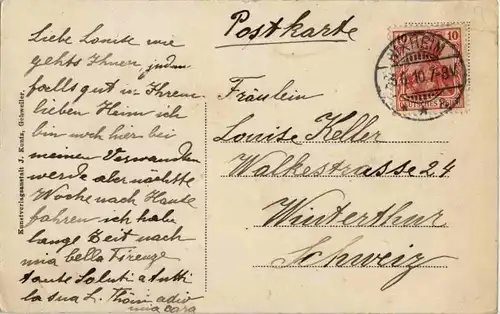 Postkarte
Liebe Louise wie
gehts Ihnen jeden
falls gut in Ihrem
lieben Heim ich
bin noch hier bei
meinen Verwandten
werde aber nächste
Woche nach Hause
fahren ich habe
lange Zeit nach
mia bella Firenze
tante Saluti a tutti
la sua L. adio
mia cara
Kunstverlagsanstalt J. Kuntz, Gebweiler.
10 10
Deutsches Reich
10. 7-8V
Fräulein
Louise Keller
Walkestrasse 24
Winterthur
Schweiz